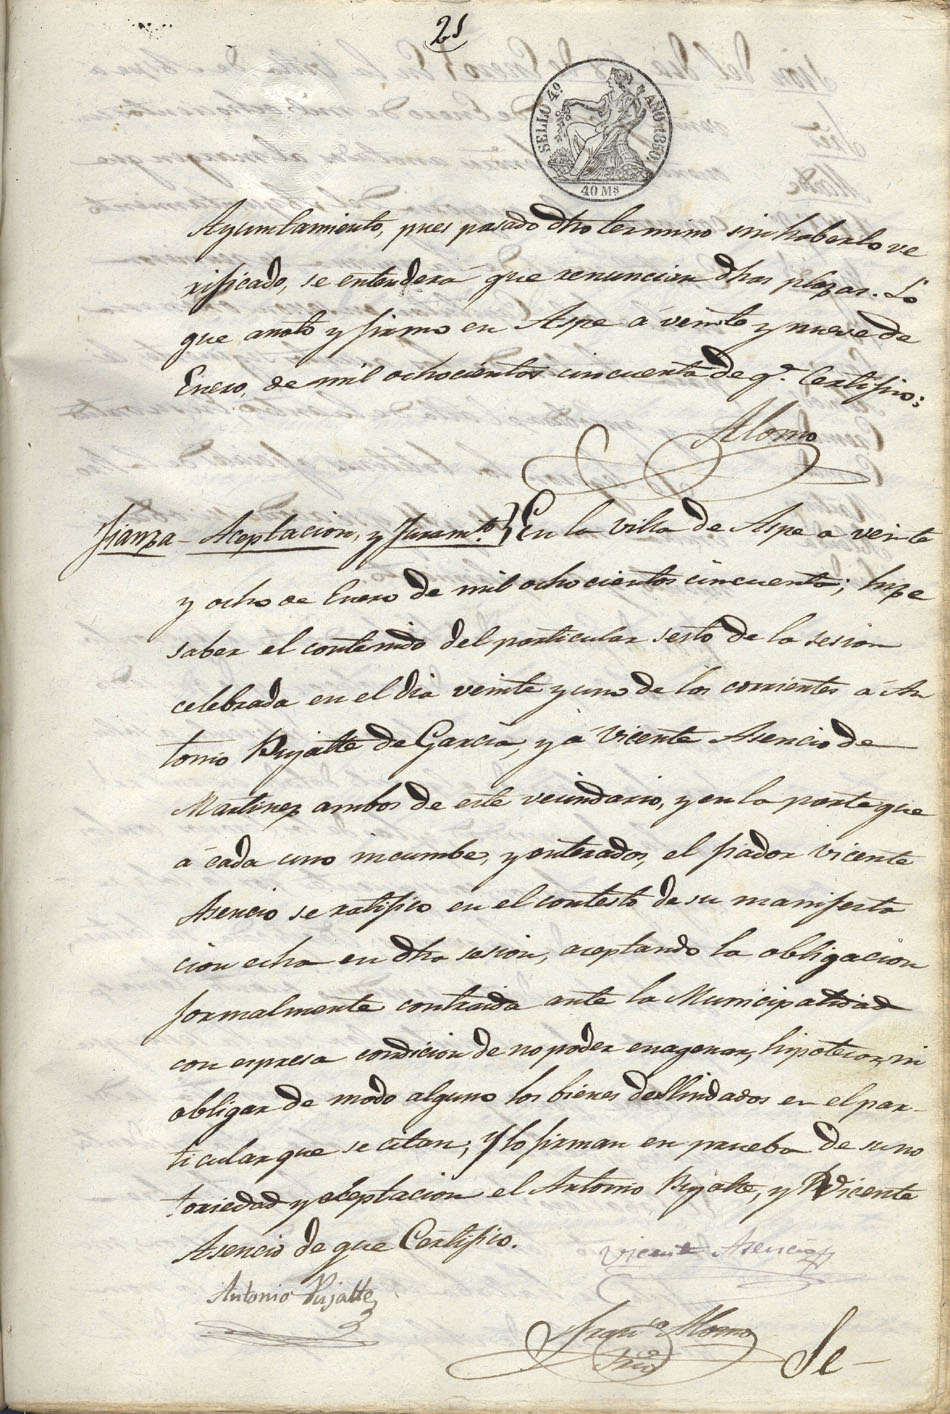 21
SELLO 4º AÑO 1850
40 Ms
Ayuntamiento, pues pasado dho termino sin haberlo ve
rificado, se entenderá que renuncian dhas plazas. Lo
que anoto y firmo en Aspe a veinte y nueve de
Enero, de mil ochocientos cincuenta de q.e Certifico:
Alonso
Fianza - Aceptacion, y Juram.to } En la villa de Aspe a veinte
y ocho de Enero de mil ochocientos cincuenta; hize
saber el contenido del particular sesto de la sesion
celebrada en el dia veinte y uno de los corrientes á An
tonio Pujalte de Garcia, y á Vicente Asencio de
Martinez ambos de este vecindario, y en la parte que
á cada uno incumbe, y enterados, el fiador Vicente
Asencio se ratifico en el contesto de su manifesta
cion echa en dha sesion, aceptando la obligacion
formalmente contraida ante la Municipalidad
con espresa condicion de no poder enagenar, hipotecar, ni
obligar de modo alguno los bienes deslindados en el par-
ticular que se citan; y lo firman en prueba de su no
toriedad y aceptacion el Antonio Pujalte, y Vicente
Asencio de que Certifico.
Vicente Asencio
Antonio Pujalte
Fran.co Alonso
Srio
Se-